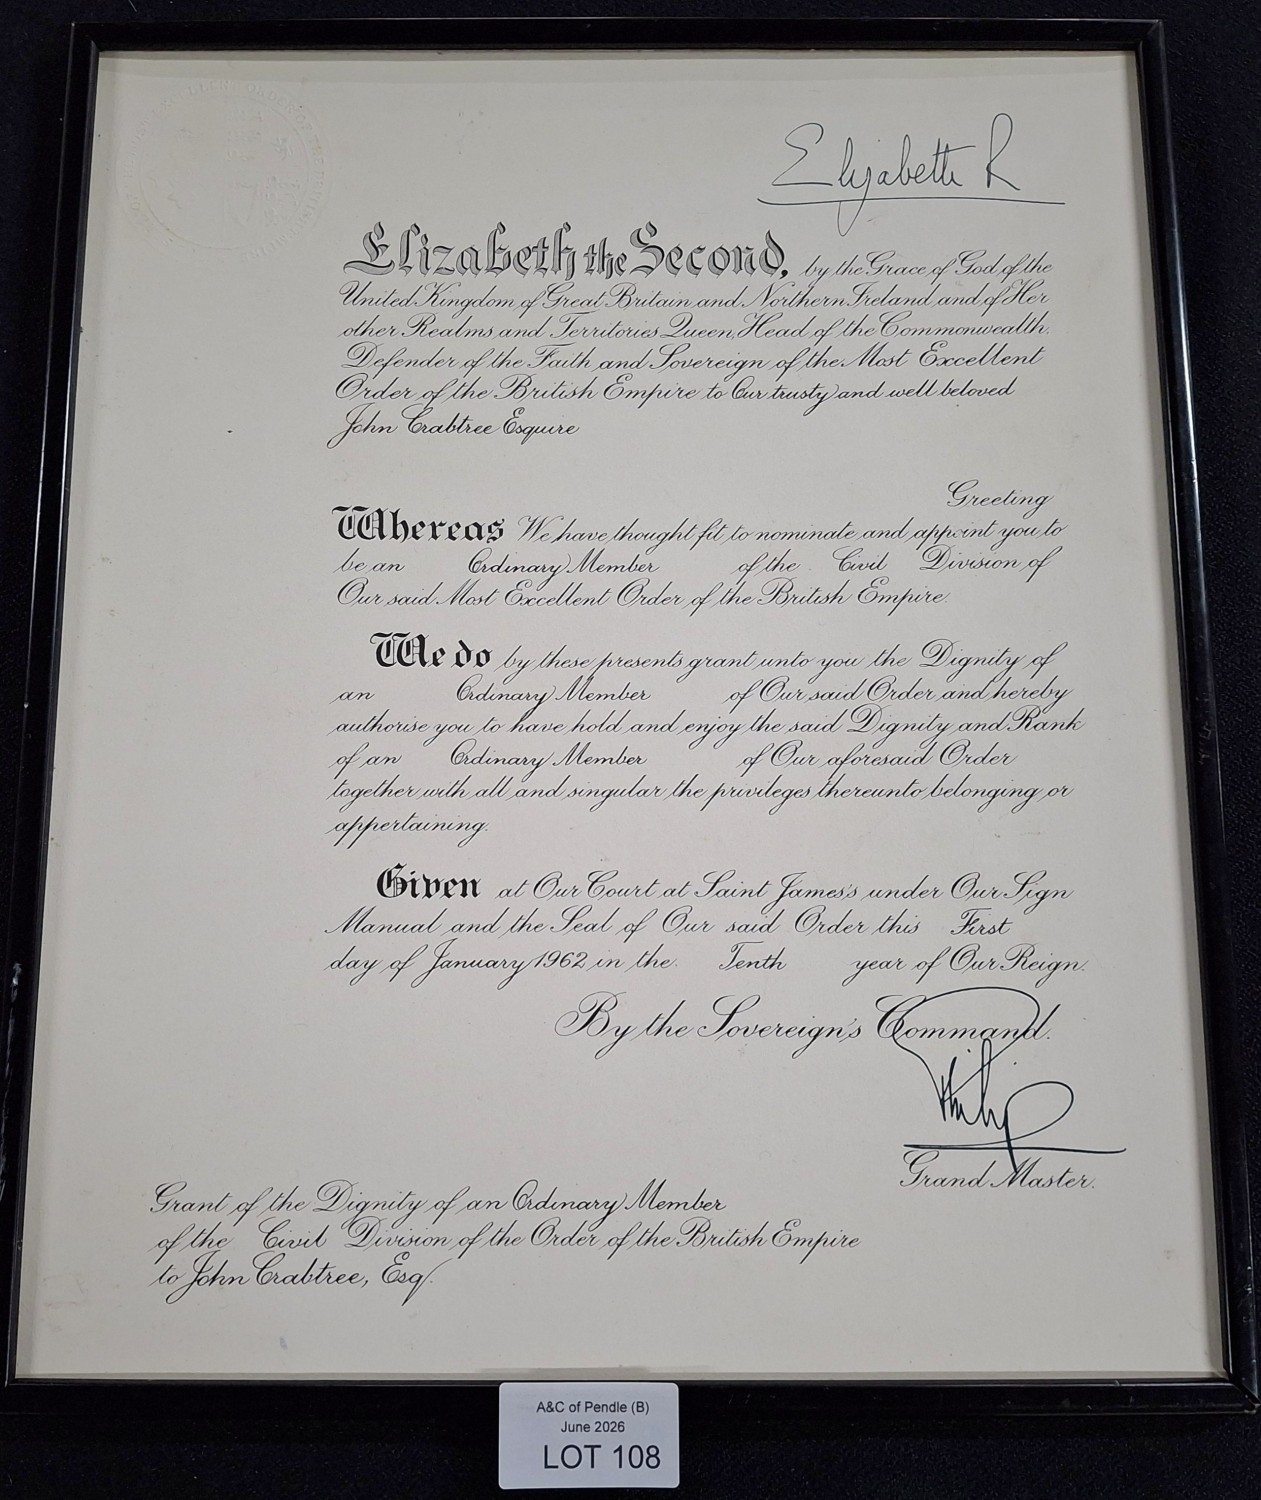 Elizabeth R
Elizabeth the Second, by the Grace of God, of the
United Kingdom of Great Britain and Northern Ireland and of Her
other Realms and Territories Queen, Head of the Commonwealth,
Defender of the Faith and Sovereign of the Most Excellent
Order of the British Empire to Our trusty and well beloved
John Crabtree Esquire
Greeting
Whereas We have thought fit to nominate and appoint you to
be an Ordinary Member of the Civil Division of
Our said Most Excellent Order of the British Empire.
We do by these presents grant unto you the Dignity of
an Ordinary Member of Our said Order and hereby
authorise you to have hold and enjoy the said Dignity and Rank
of an Ordinary Member of Our aforesaid Order
together with all and singular the privileges thereunto belonging or
appertaining.
Given at Our Court at Saint James's under Our Sign
Manual and the Seal of Our said Order this First
day of January 1962 in the Tenth year of Our Reign.
By the Sovereign's Command.
Philip
Grand Master.
Grant of the Dignity of an Ordinary Member
of the Civil Division of the Order of the British Empire
to John Crabtree, Esq.
A&C of Pendle (B)
June 2026
LOT 108